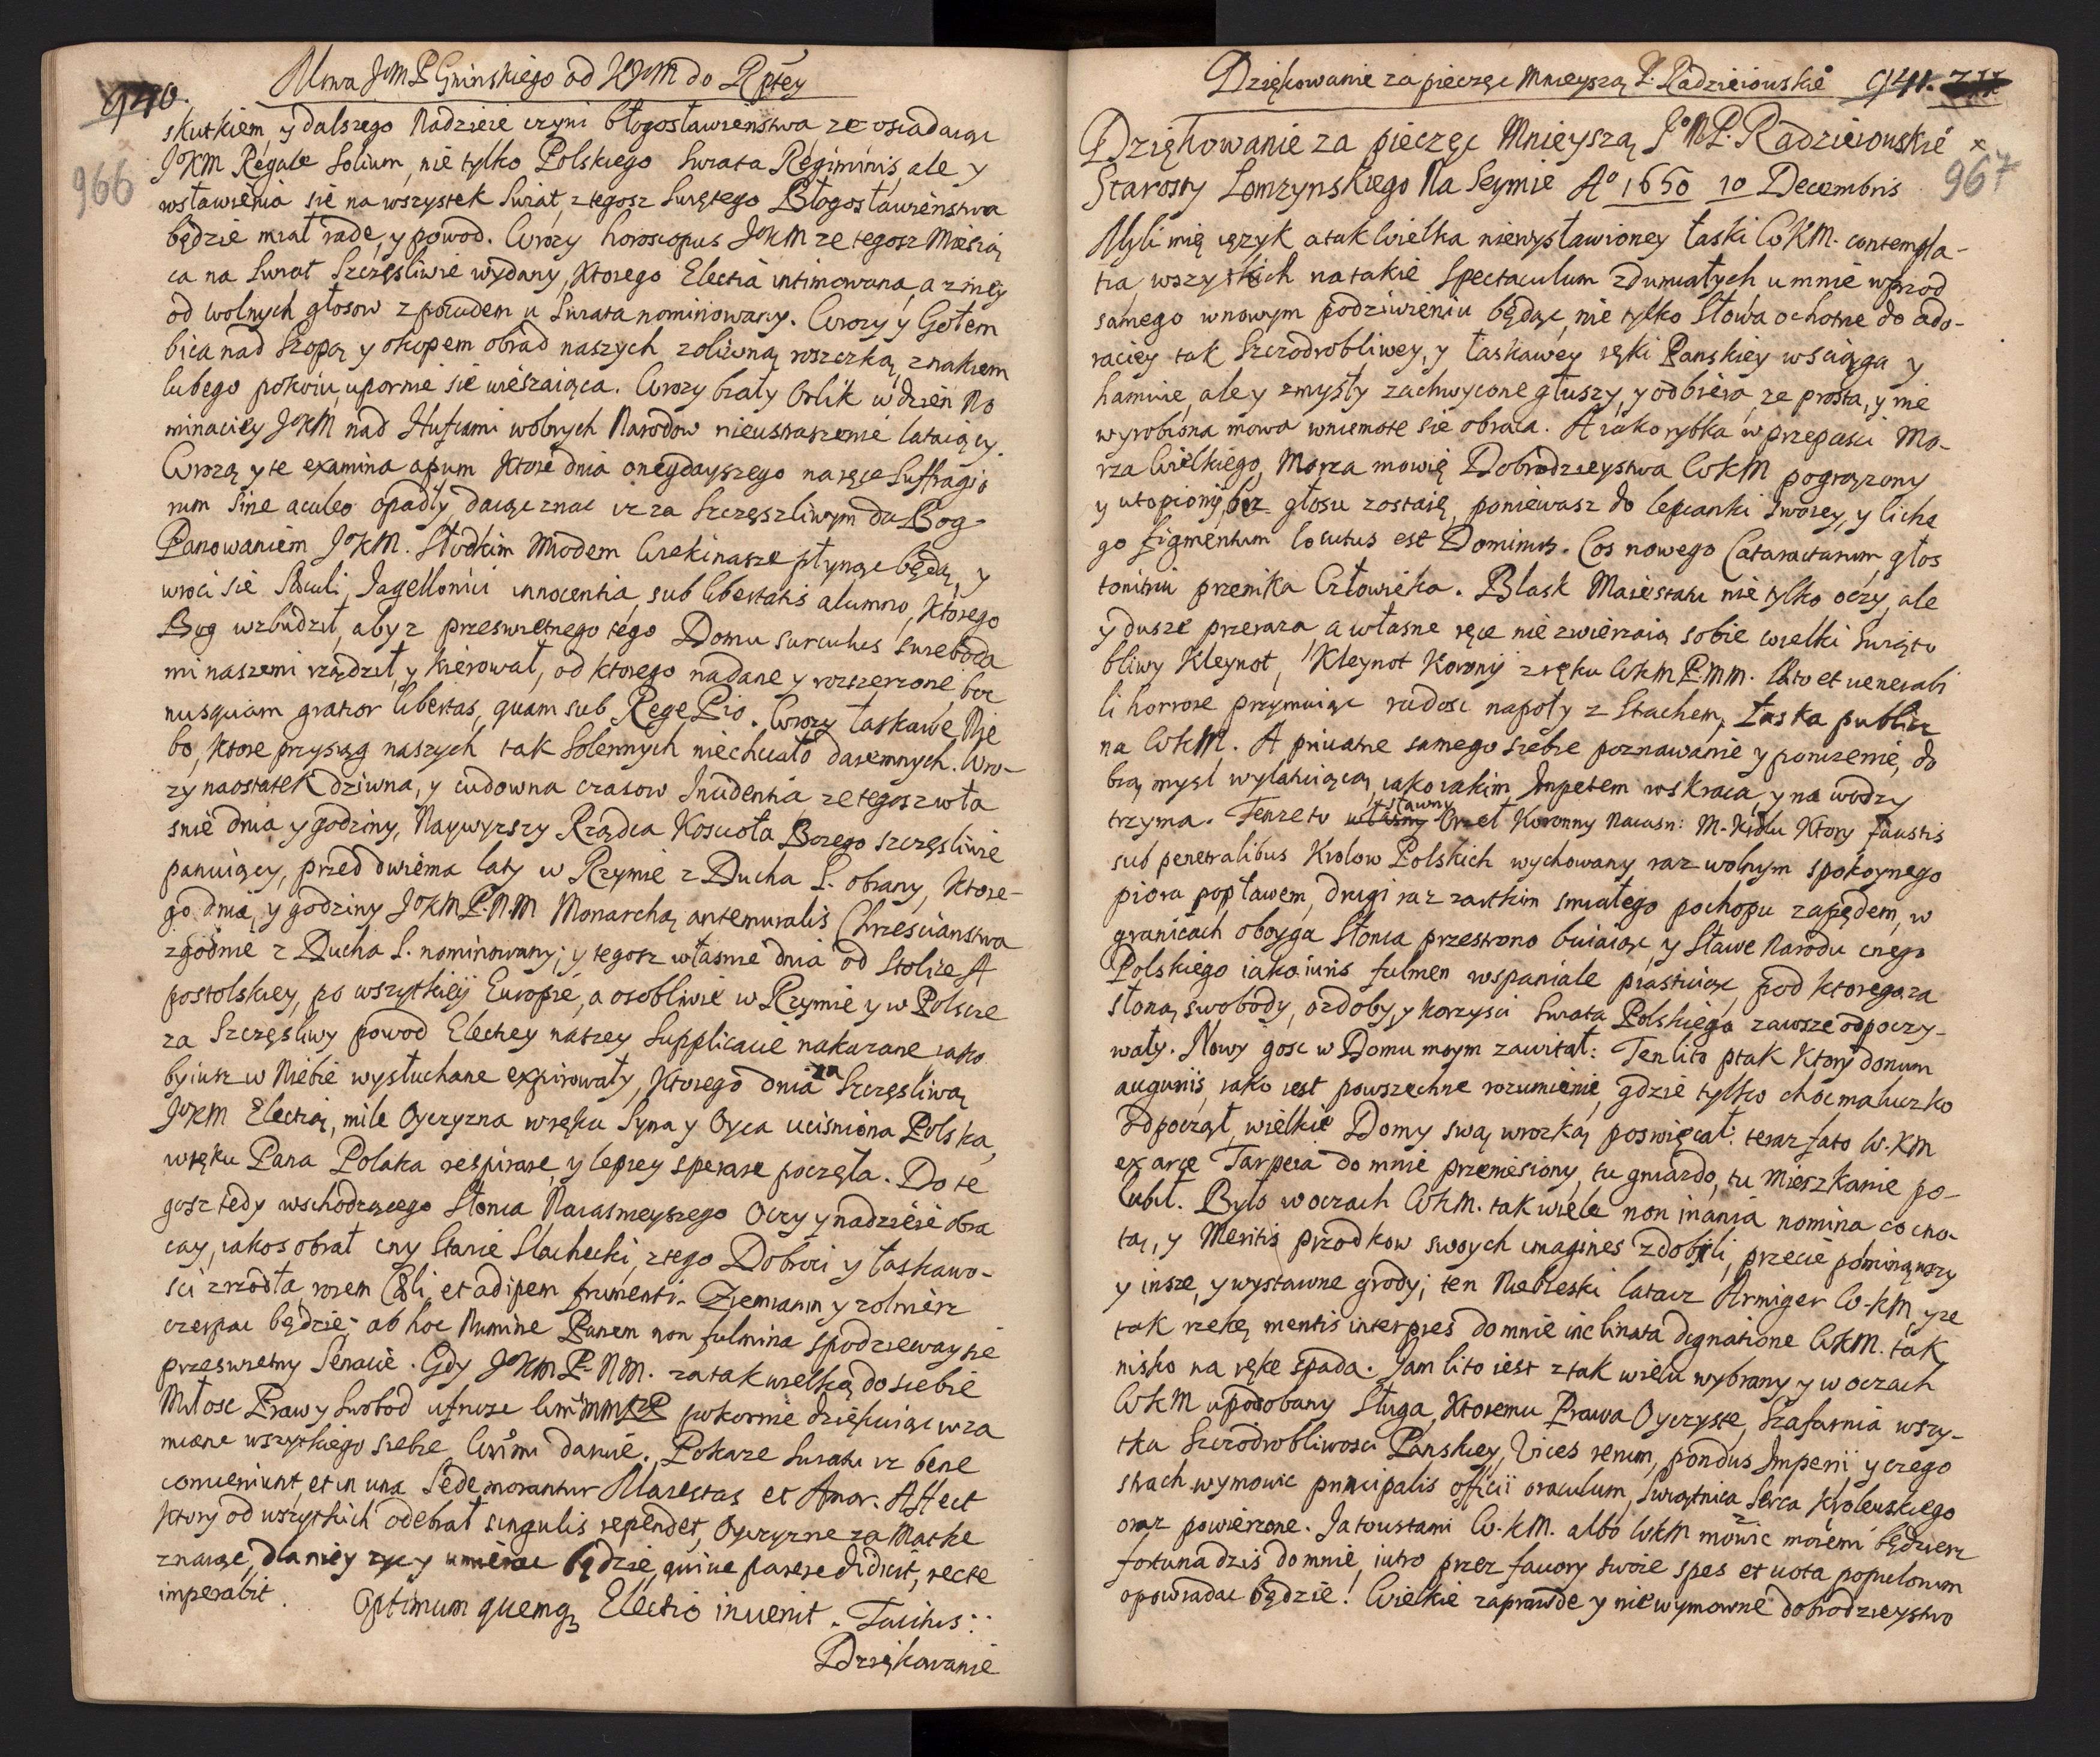 940.
Mowa JeM P. Gninskiego od KJeM do Rptey
966
skutkiem y dalszego Nadzieie czyni błogosławienstwa ze osiadaiąc
JoKM Regale Solium, nie tylko Polskiego Swiata Regiminis, ale y
wsławienia sie na wszystek Swiat, z tegosz Swiętego Błogosławienstwa
będzie miał radę, y powod. Wrozy horoscopus JoKM ze tegosz Miesią
ca na Swiat Szczęsliwie wydany, Ktorego Electia intimowana, a z niey
od wolnych głosow z porządem u Swiata nominowany. Wrozy y Gołem
bica nad Szopą y okopem obrad naszych z oliwną roszczką, znakiem
lubego pokoiu, upornie sie wieszaiąca. Wrozy biały Orlik w dzien No
minaciey JoKM nad Hufcami wolnych Narodow nieustraszenie lataiący.
Wrozą y te examina apum Ktore dnia onegdayszego na ręce Suffragio
rum sine aculeo opadły, daiąc znac iz za Szczęszliwym da Bog
Panowaniem JoKM. Słodkim Miodem Wieki nasze płynąc będą, y
wroci sie Saeculi Jagellonici innocentia, sub libertatis alumno, Ktorego
Bog wzbudził, aby z przeswietnego tego Domu surculus swieboda
mi naszemi rządził, y kierował, od ktorego nadane y rozszerzone boc
nusquam gratior libertas, quam sub Rege Pio. Wrozy łaskawe Nie
bo, Ktore przysiąg naszych tak Solennych niechciało daremnych. Wro-
zy naostatek dziwna, y cudowna czasow Inudentia ze tegosz wła
snie dnia y godziny, Naywyzszy Rządca Koscioła Bozego szczęsliwie
panuiący, przed dwiema laty w Rzymie z Ducha S. obrany, Ktore-
go dnia, y godziny JoKM P. N. M Monarchą antemuralis Chrescianstwa
zgodnie z Ducha S. nominowany; y tegosz własnie dnia od Stolice A
postolskiey, po wszytkiey Europie, a osobliwie w Rzymie y w Polscze
za Szczęsliwy powod Electiey naszey Supplicacie nakazane iako
by iusz w Niebie wysłuchane expirowały, Ktorego dnia za Szczęsliwą
JoKM Electią, mile Oyczyzna w ręku Syna y Oyca ucisniona Polska,
w ręku Pana Polaka respirare, y lepiey sperare poczęła. Do te
gosz tedy wschodzącego Słonca Naiasnieyszego Oczy y nadzieie obra
cay, iakos obrał cny Stanie Slachecki, z tego Dobroci y łaskawo-
sci zrodła, rorem Caeli, et adipem frumenti. Ziemianin y zolnierz
czerpac będzie; ab hoc Numine Panem non fulmina spodziewaysie
przeswietny Senacie. Gdy JoKM P. NM. za tak wielką do siebie
Miłosc Praw y Swobod ufnosc pokornie dziękuiąc w za
mianę wszytkiego siebie daruie. Pokaze Swiatu iz bene
conueniunt, et in una Sede morantur Maiestas et Amor. Affect
Ktory od wszytkich odebrał singulis rependet, Oyczyznę za Matkę
znaiąc, dla niey zyc y umierac będzie, quiue parere didicit, recte
imperabit. Optimum quemq; Electio inuenit. Tacitus:
Dziękowanie
Dziękowanie za pieczęc Mnieyszą P. Radzieiowskie 941.
967
Dziękowanie za pieczęc Mnieyszą Jo M P. Radzieiowskie
Starosty Lomzynskiego Na Seymie Ao 1650 10 Decembris
Myli mię ięzyk a tak Wielka niewysławioney łaski WKM. contempla-
tia, wszytkich na takie spectaculum zdumiałych u mnie wprzod
samego w nowym podziwieniu będąc, nie tylko słowa ochotne do ado-
raciey tak Szczodrobliwey, y łaskawey ręki Panskiey wsciąga y
hamuie, ale y zmysły zachwycone głuszy, y odbiera, ze prosta, y nie
wyrobiona mowa w niemotę sie obraca. A iako rybka w przepasci Mo-
rza Wielkiego, Morza mowię Dobrodzieystwa WKM pogrązony
y utopiony, bez głosu zostaię, poniewasz do lepianki swoiey, y liche
go figmentum locutus est Dominus. Cos nowego Cataractarum, głos
tonitrui przenika Człowieka. Blask Maiestatu nie tylko oczy, ale
y dusze przeraza, a własne ręce nie zwierzaią sobie wielki Swiąto
bliwy Kleynot, Kleynot Korony z ręku WKM P. MM. Lato et uenerabi
li horrore przymuiąc radosc napoły z Strachem, łaska publicz
na WKM. A priuatne samego siebie poznawanie y ponizenie, do
brą mysl wylatuiącą, iako iakim Impetem wskraca, y na wodzy
trzyma. Tenze to sławny Orzeł Koronny Naiasn: M. Krolu Ktory faustis
sub penetralibus Krolow Polskich wychowany raz wolnym spokoynego
piora popławem, drugi raz rzutkim smiałego pochopu zapędem, w
granicach oboyga Słonca przestrono buiaiąc, y Sławę Narodu cnego
Polskiego iako iuris fulmen wspaniale piastuiąc, pod ktorego za
słoną, swobody, ozdoby, y korzysci Swiata Polskiego zawsze odpoczy-
wały. Nowy gosc w Domu moym zawitał: Ten li to ptak Ktory donum
augurijs, iako iest powszechne rozumienie, gdzie tylko choc maluczko
odpoczął, wielkie Domy swą wrozką poswięcał: teraz fato W. KM
ex arce Tarpeia do mnie przeniesiony, tu gniazdo, tu Mieszkanie po-
lubił. Było w oczach WKM. tak wiele non inania nomina co cno-
tą, y Meritis przodkow swoych imagines zdobili, przecie pominąwszy
y insze, y wystawne grody; ten Niebieski latacz Armiger W. KM, y ze
tak rzekę mentis interpres do mnie inclinata dignatione WKM. tak
nisko na rękę spada. Jam li to iest z tak wielu wybrany y w oczach
WKM upodobany Sługa, Ktoremu Prawa Oyczyste, Szafarnia wszy-
tka Szczodrobliwosci Panskiey, Vices rerum, pondus Imperij y czego
strach wymowic principalis officii oraculum, Swiątnica Serca Krolewskiego
oraz powierzone. Ja to ustami W. KM. albo WKM mowic moiemi będziesz
fortuna dzis do mnie, iutro przez fauory twoie spes et uota populorum
opowiadac będzie! Wielkie zaprawdę y niewymowne dobrodzieystwo